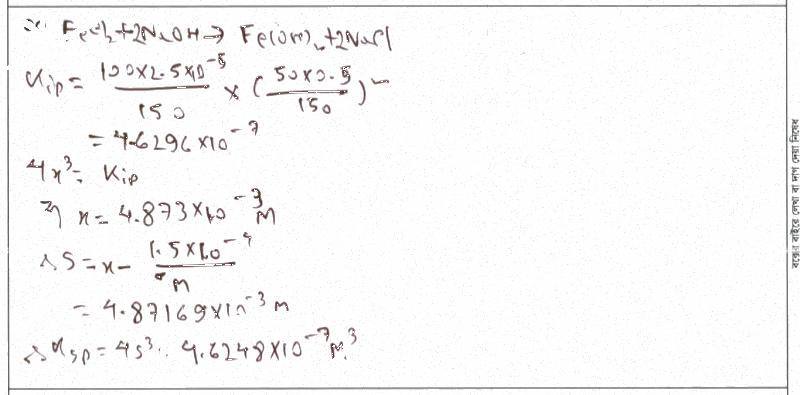 FeCl₂+2NaOH → Fe(OH)₂+2NaCl
Kip = (100×2.5×10⁻⁵)/150 × (50×0.5/150)²
= 4.6296×10⁻⁷
4x³ = Kip
⇒ x = 4.873×10⁻³ M
∴ S = x − 1.5×10⁻⁴/M
= 4.87169×10⁻³ M
∴ Ksp = 4s³ 4.6248×10⁻⁷ M³
বক্সের বাইরে লেখা বা দাগ দেয়া নিষেধ